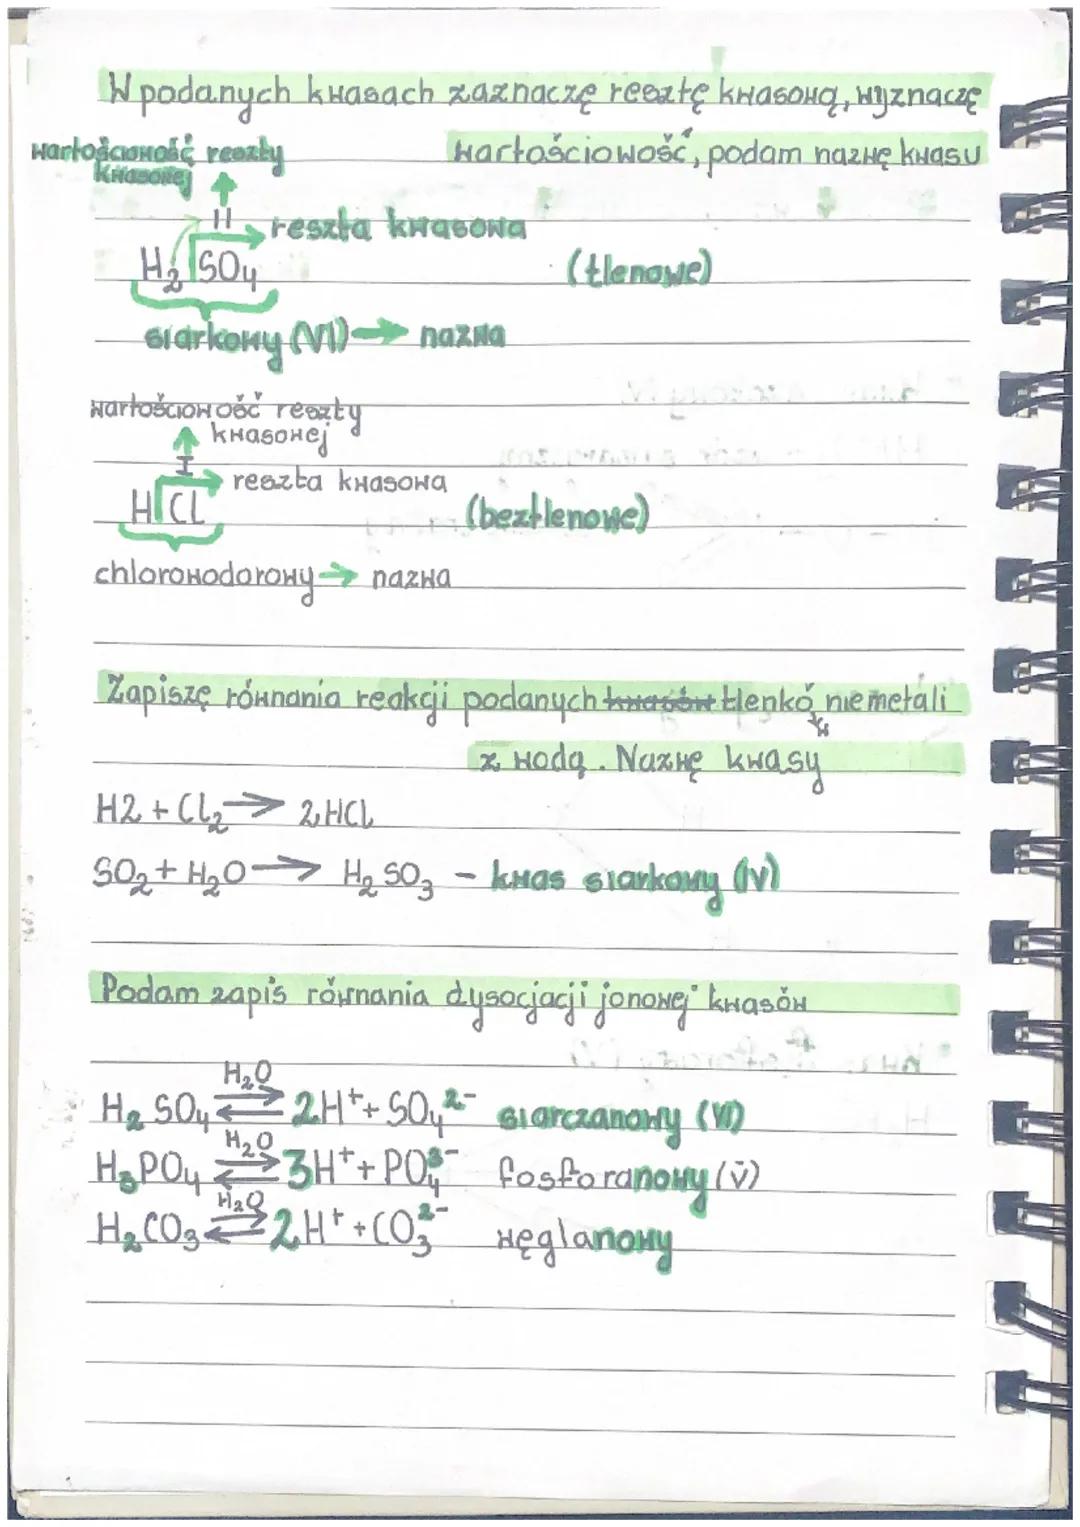 W podanych kwasach zaznaczę resztę kwasową, wyznaczę
wartościowość, podam nazwę kwasu
wartościowość reszty
kwasowej
II
reszta kwasowa
H₂SO₄
(tlenowe)
siarkowy (VI) → nazwa
wartościowość reszty
kwasowej
I
reszta kwasowa
HCl
(beztlenowe)
chlorowodorowy → nazwa
Zapiszę równania reakcji podanych kwasów tlenków niemetali
z wodą. Nazwę kwasy
H2 + Cl₂ → 2HCl
SO₂ + H₂O → H₂SO₃ - kwas siarkowy (IV)
Podam zapis równania dysocjacji jonowej kwasów
H₂O
H₂SO₄ ⇄ 2H⁺ + SO₄²⁻ siarczanowy (VI)
H₂O
H₃PO₄ ⇄ 3H⁺ + PO₄³⁻ fosforanowy (V)
H₂O
H₂CO₃ ⇄ 2H⁺ + CO₃²⁻ węglanowy